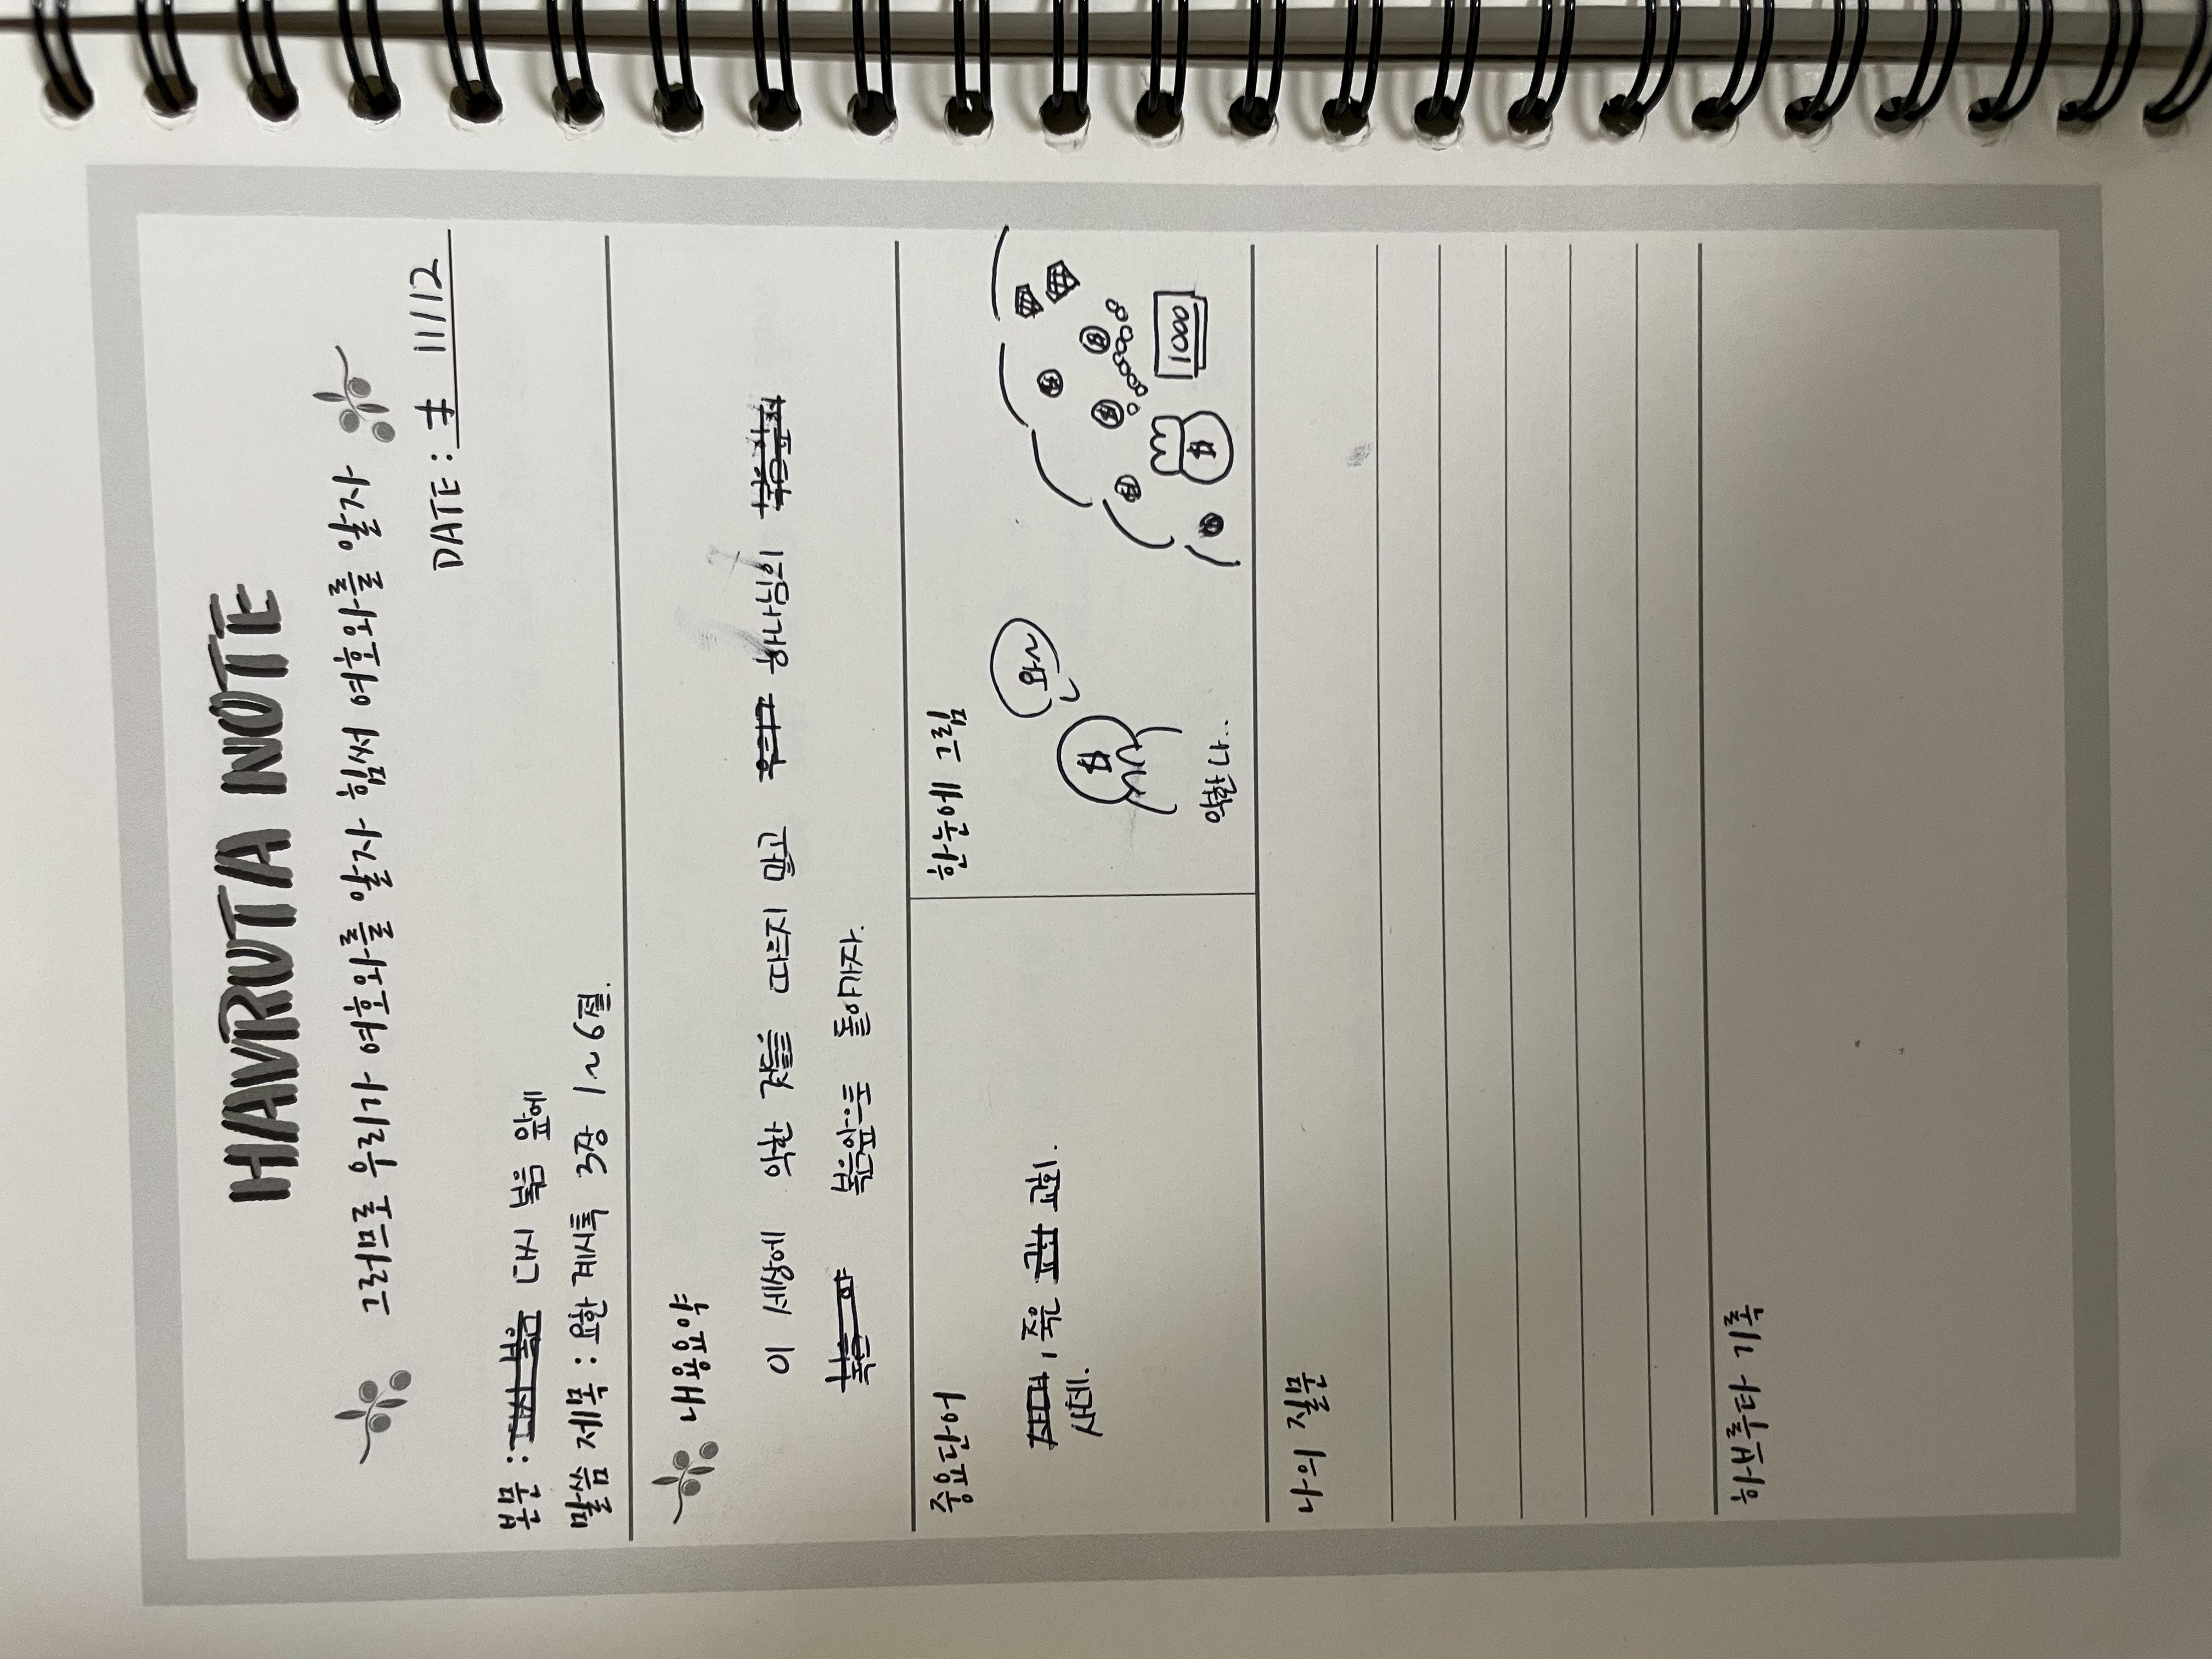 HAVRUTA NOTE
그러므로 우리가 여호와를 알자 힘써 여호와를 알자
DATE: 11/12
본문 : 다시 복음 앞에
말씀 제목 : 요한 계시록 3장 1~6절.
내용요약
이 세상에 악한 것들을 따르지 말고 하나님의
복음앞으로 돌아가자.
중요단어
죽은 교회.
사데.
한눈에 그림
와~
$
악한 나..
$
10000
나의 질문
하브루타 기록